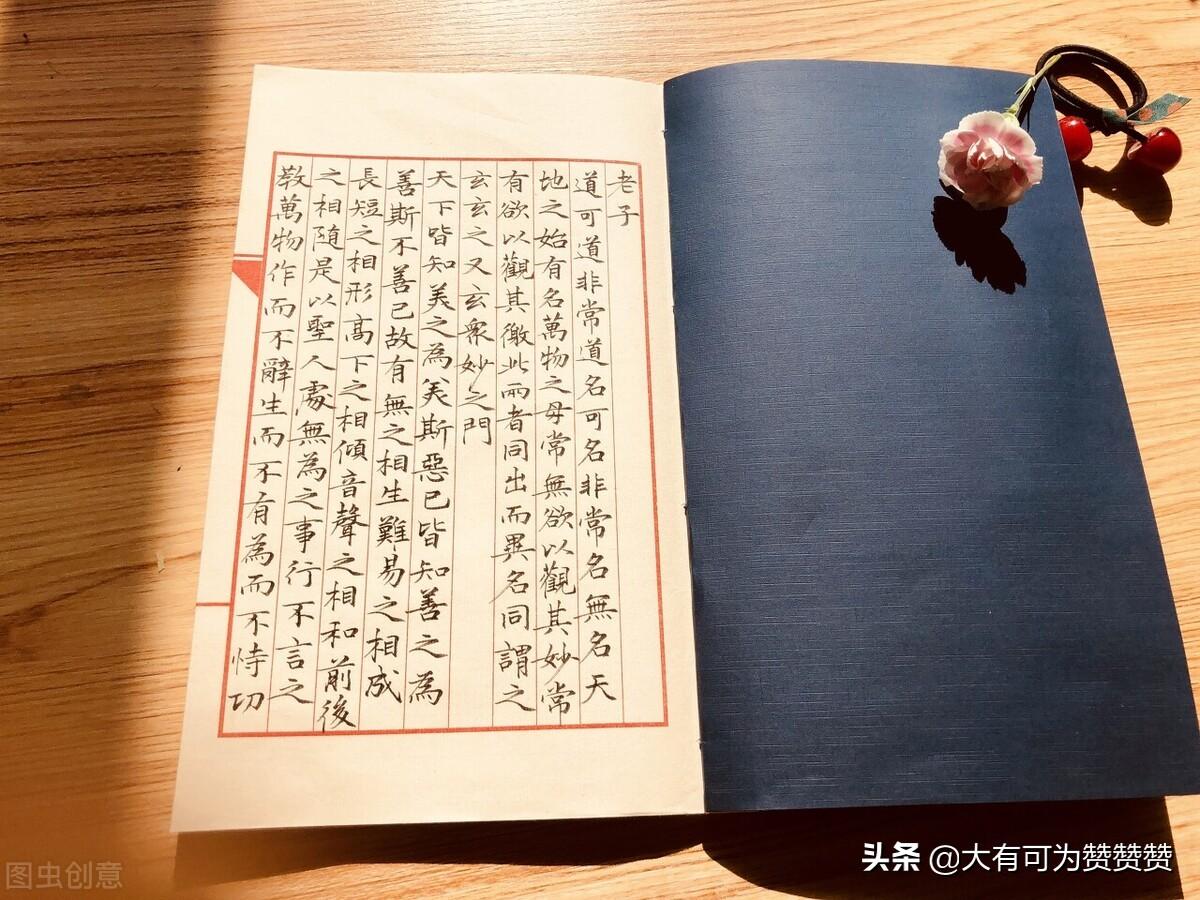 老子
道可道非常道名可名非常名無名天
地之始有名萬物之母常無欲以觀其妙常
有欲以觀其徼此兩者同出而異名同謂之
玄玄之又玄眾妙之門
天下皆知美之為美斯惡已皆知善之為
善斯不善已故有無之相生難易之相成
長短之相形高下之相傾音聲之相和前後
之相隨是以聖人處無為之事行不言之
教萬物作而不辭生而不有為而不恃功
图虫创意
头条 @大有可为赞赞赞